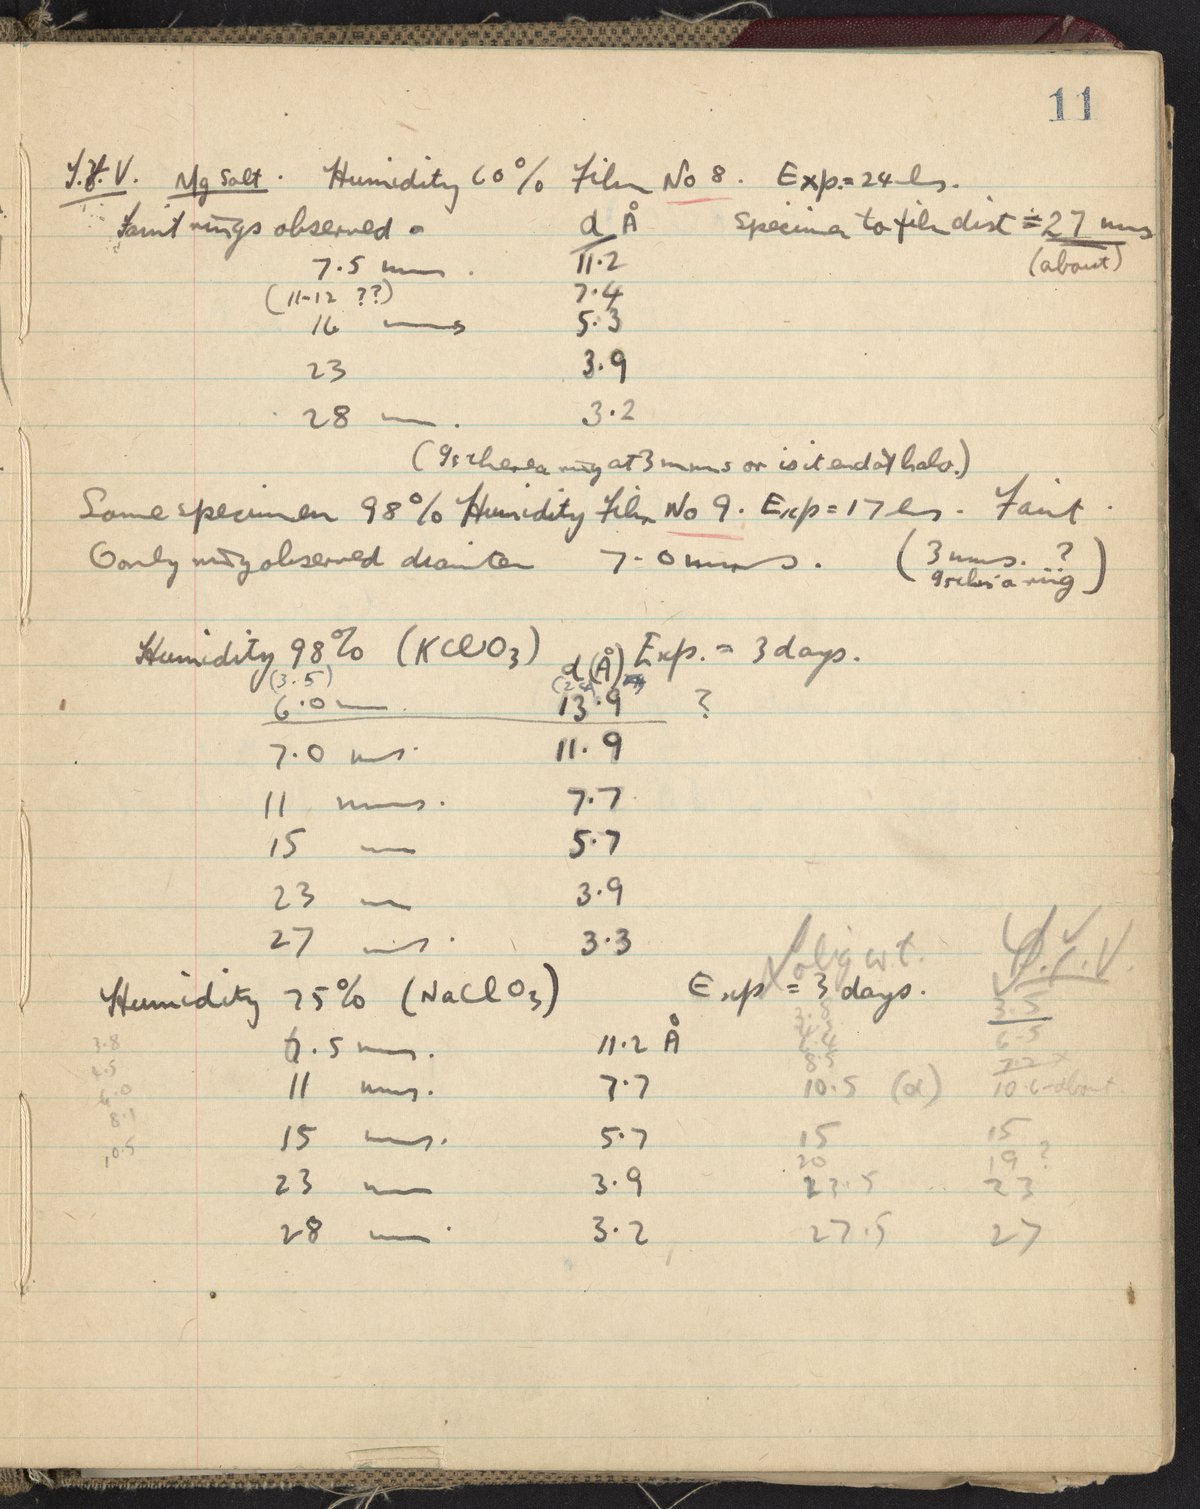 11
T.Y.V. Mg Salt. Humidity 60% Film No 8. Exp. = 24 hs.
Faint rings observed d Å Specimen to film dist ≑ 27 mms
7.5 mms. 11.2 (about)
(11-12 ??) 7.4
16 mms 5.3
23 3.9
28 mm. 3.2
(Is there a ring at 3 mms or is it end of halo.)
Same specimen 98% Humidity Film No 9. Exp = 17 hs. Faint.
Only ring observed diameter 7.0 mms. (3 mms. ?
Is this a ring)
Humidity 98% (KClO3) d (Å) Exp. = 3 days.
(3.5)
6.0 mm. 13.9 ?
7.0 ms. 11.9
11 mms. 7.7
15 mm 5.7
23 mm 3.9
27 ms. 3.3
orig wt. T.Y.V.
Humidity 75% (NaClO3) Exp = 3 days. 3.5
3.8 7.5 mms. 11.2 Å 6.5
4.5 8.5 7.2 x
6.0 11 mms. 7.7 10.5 (d) 10.6 about
8.1
10.5 15 mms. 5.7 15 15
20 19 ?
23 mm 3.9 23.5 23
28 mm. 3.2 27.5 27